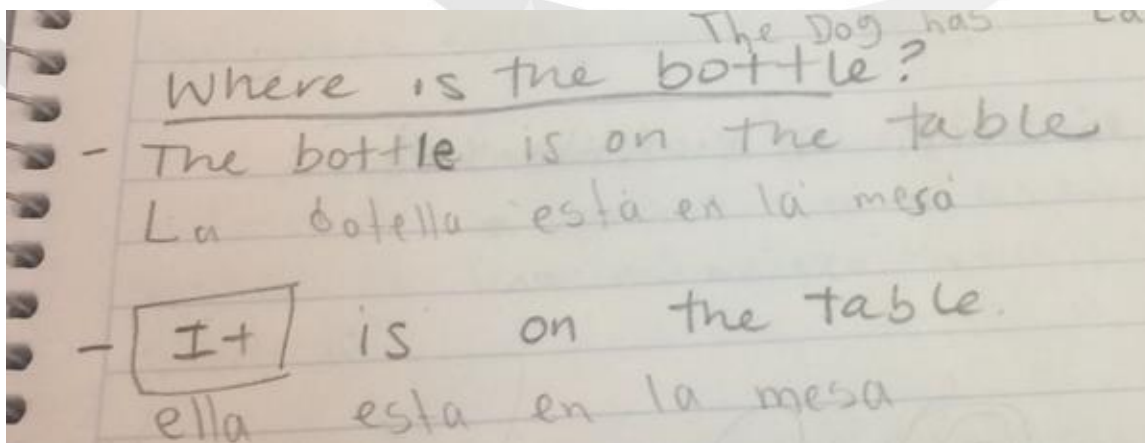 The Dog has La
Where is the bottle?
- The bottle is on the table
La botella está en la mesa
- It is on the table.
ella esta en la mesa